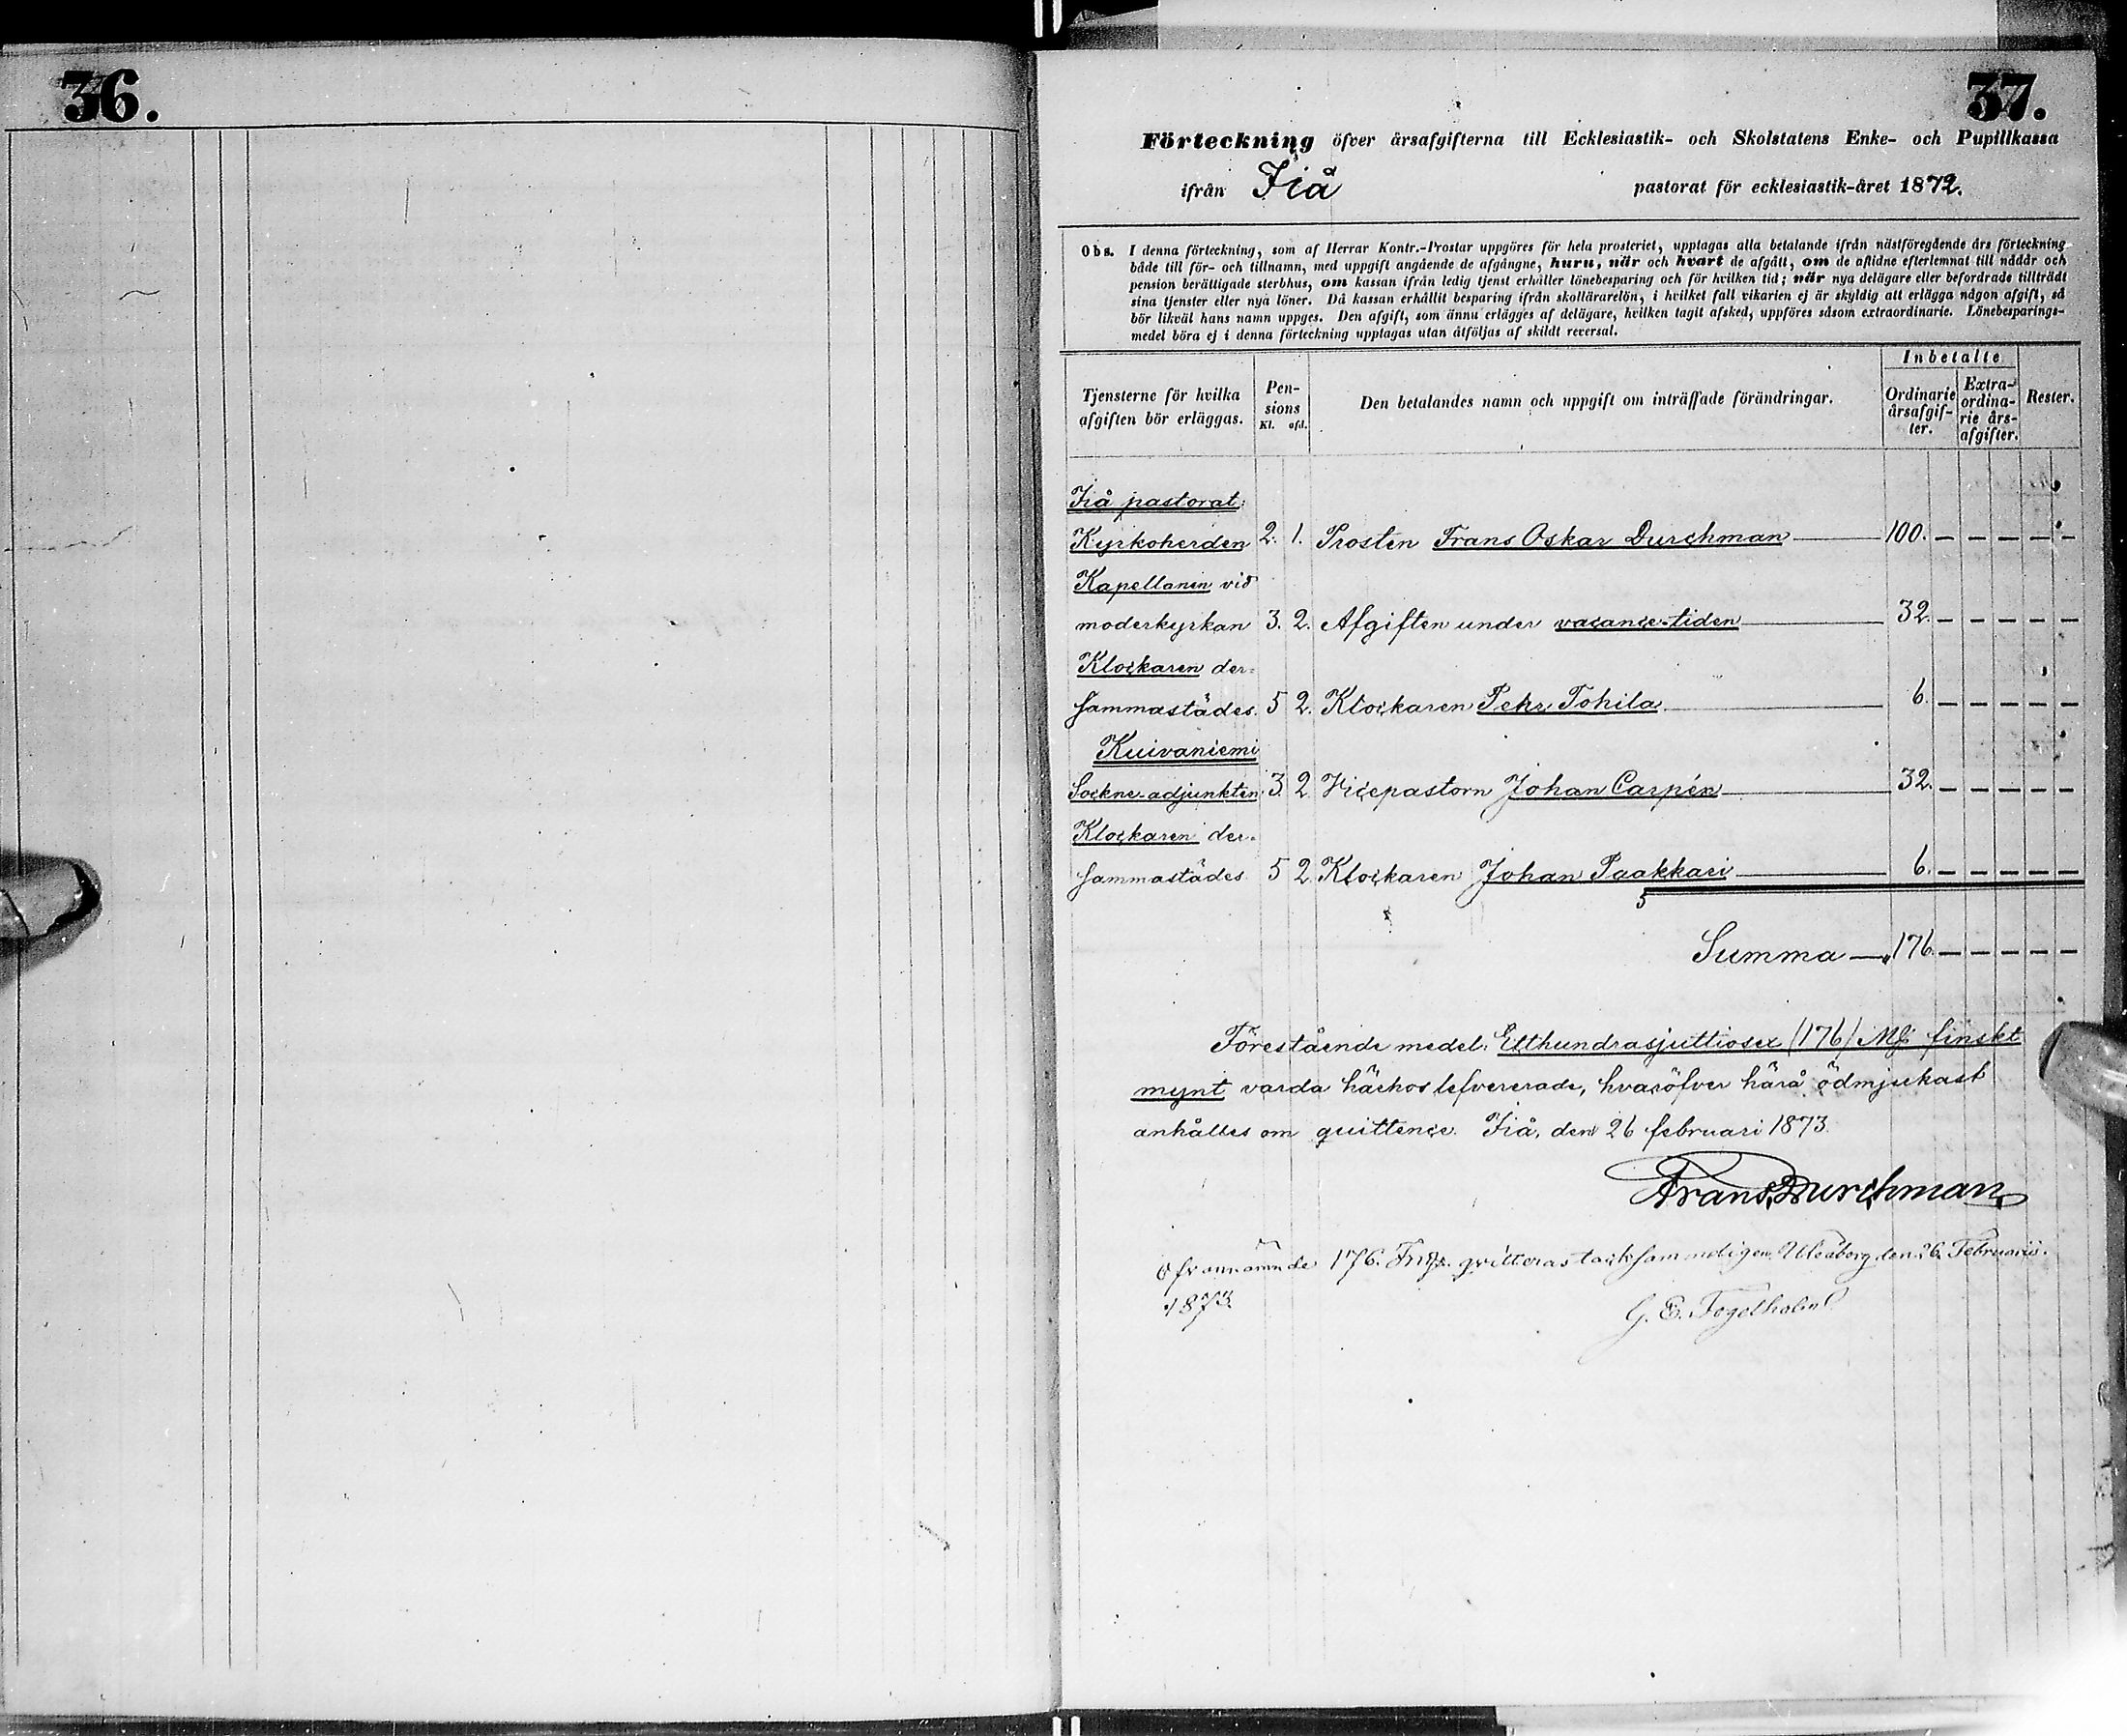 36.
37.
Förteckning öfver årsafgifterna till Ecklesiastik- och Skolstatens Enke- och Pupillkassa
ifrån Jiå pastorat för ecklesiastik-året 1872.
Obs. I denna förteckning, som af Herrar Kontr.-Prostar uppgöres för hela prosteriet, upptagas alla betalande ifrån nästföregående års förteckning
både till för- och tillnamn, med uppgift angående de afgångne, huru, när och hvart de afgått, om de aflidne efterlemnat till nådår och
pension berättigade sterbhus, om kassan ifrån ledig tjenst erhåller lönebesparing och för hvilken tid; när nya delägare eller befordrade tillträdt
sina tjenster eller nya löner. Då kassan erhållit besparing ifrån skollärarelön, i hvilket fall vikarien ej är skyldig att erlägga någon afgift, så
bör likväl hans namn uppges. Den afgift, som ännu erlägges af delägare, hvilken tagit afsked, uppföres såsom extraordinarie. Lönebesparings-
medel böra ej i denna förteckning upptagas utan åtföljas af skildt reversal.
Tjensterne för hvilka
afgiften bör erläggas.
Pen-
sions
Kl. afd.
Den betalandes namn och uppgift om inträffade förändringar.
Inbetalte
Ordinarie
årsafgif-
ter.
Extra-
ordina-
rie års-
afgifter.
Rester.
Jiå pastorat.
Kyrkoherden 2. 1. Prosten Frans Oskar Durchman — 100. — — — — —
Kapellanen vid
moderkyrkan 3. 2. Afgiften under vacance-tiden — 32. — — — — —
Klockaren der-
sammastädes. 5 2. Klockaren Pehr Tohila — 6. — — — — —
Kuivaniemi
Sockne-adjunkten 3. 2. Vicepastorn Johan Carpén — 32. — — — — —
Klockaren der-
sammastädes 5 2. Klockaren Johan Paakkari — 6. — — — — —
5
Summa — 176. — — — — —
Förestående medel, Etthundrasjuttiosex (176) Mk finskt
mynt varda härhos lefvererade, hvaröfver härå ödmjukast
anhålles om quittence. Jiå, den 26 februari 1873.
Frans Durchman
Ofvannämnde 176. Fmk. qvitteras tacksammeligen. Uleåborg den 26 Februarii.
1873.
G. E. Fogelholm